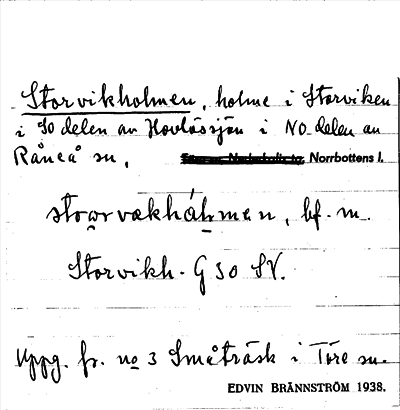 Storvikholmen, holme i Storviken
i SO delen av Hovlössjön i NO delen av
Råneå sn, Norrbottens l.
storvekhålmen, bf. m.
Storvikh. G 30 SV.
Uppg. fr. no 3 Småträsk i Töre sn.
EDVIN BRÄNNSTRÖM 1938.